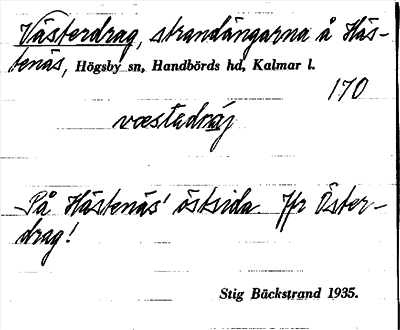 Västerdrag, strandängarna å Häs-
tenäs, Högsby sn, Handbörds hd, Kalmar l.
170
væstadráj
På Hästenäs' östsida. Jfr Öster-
drag!
Stig Bäckstrand 1935.